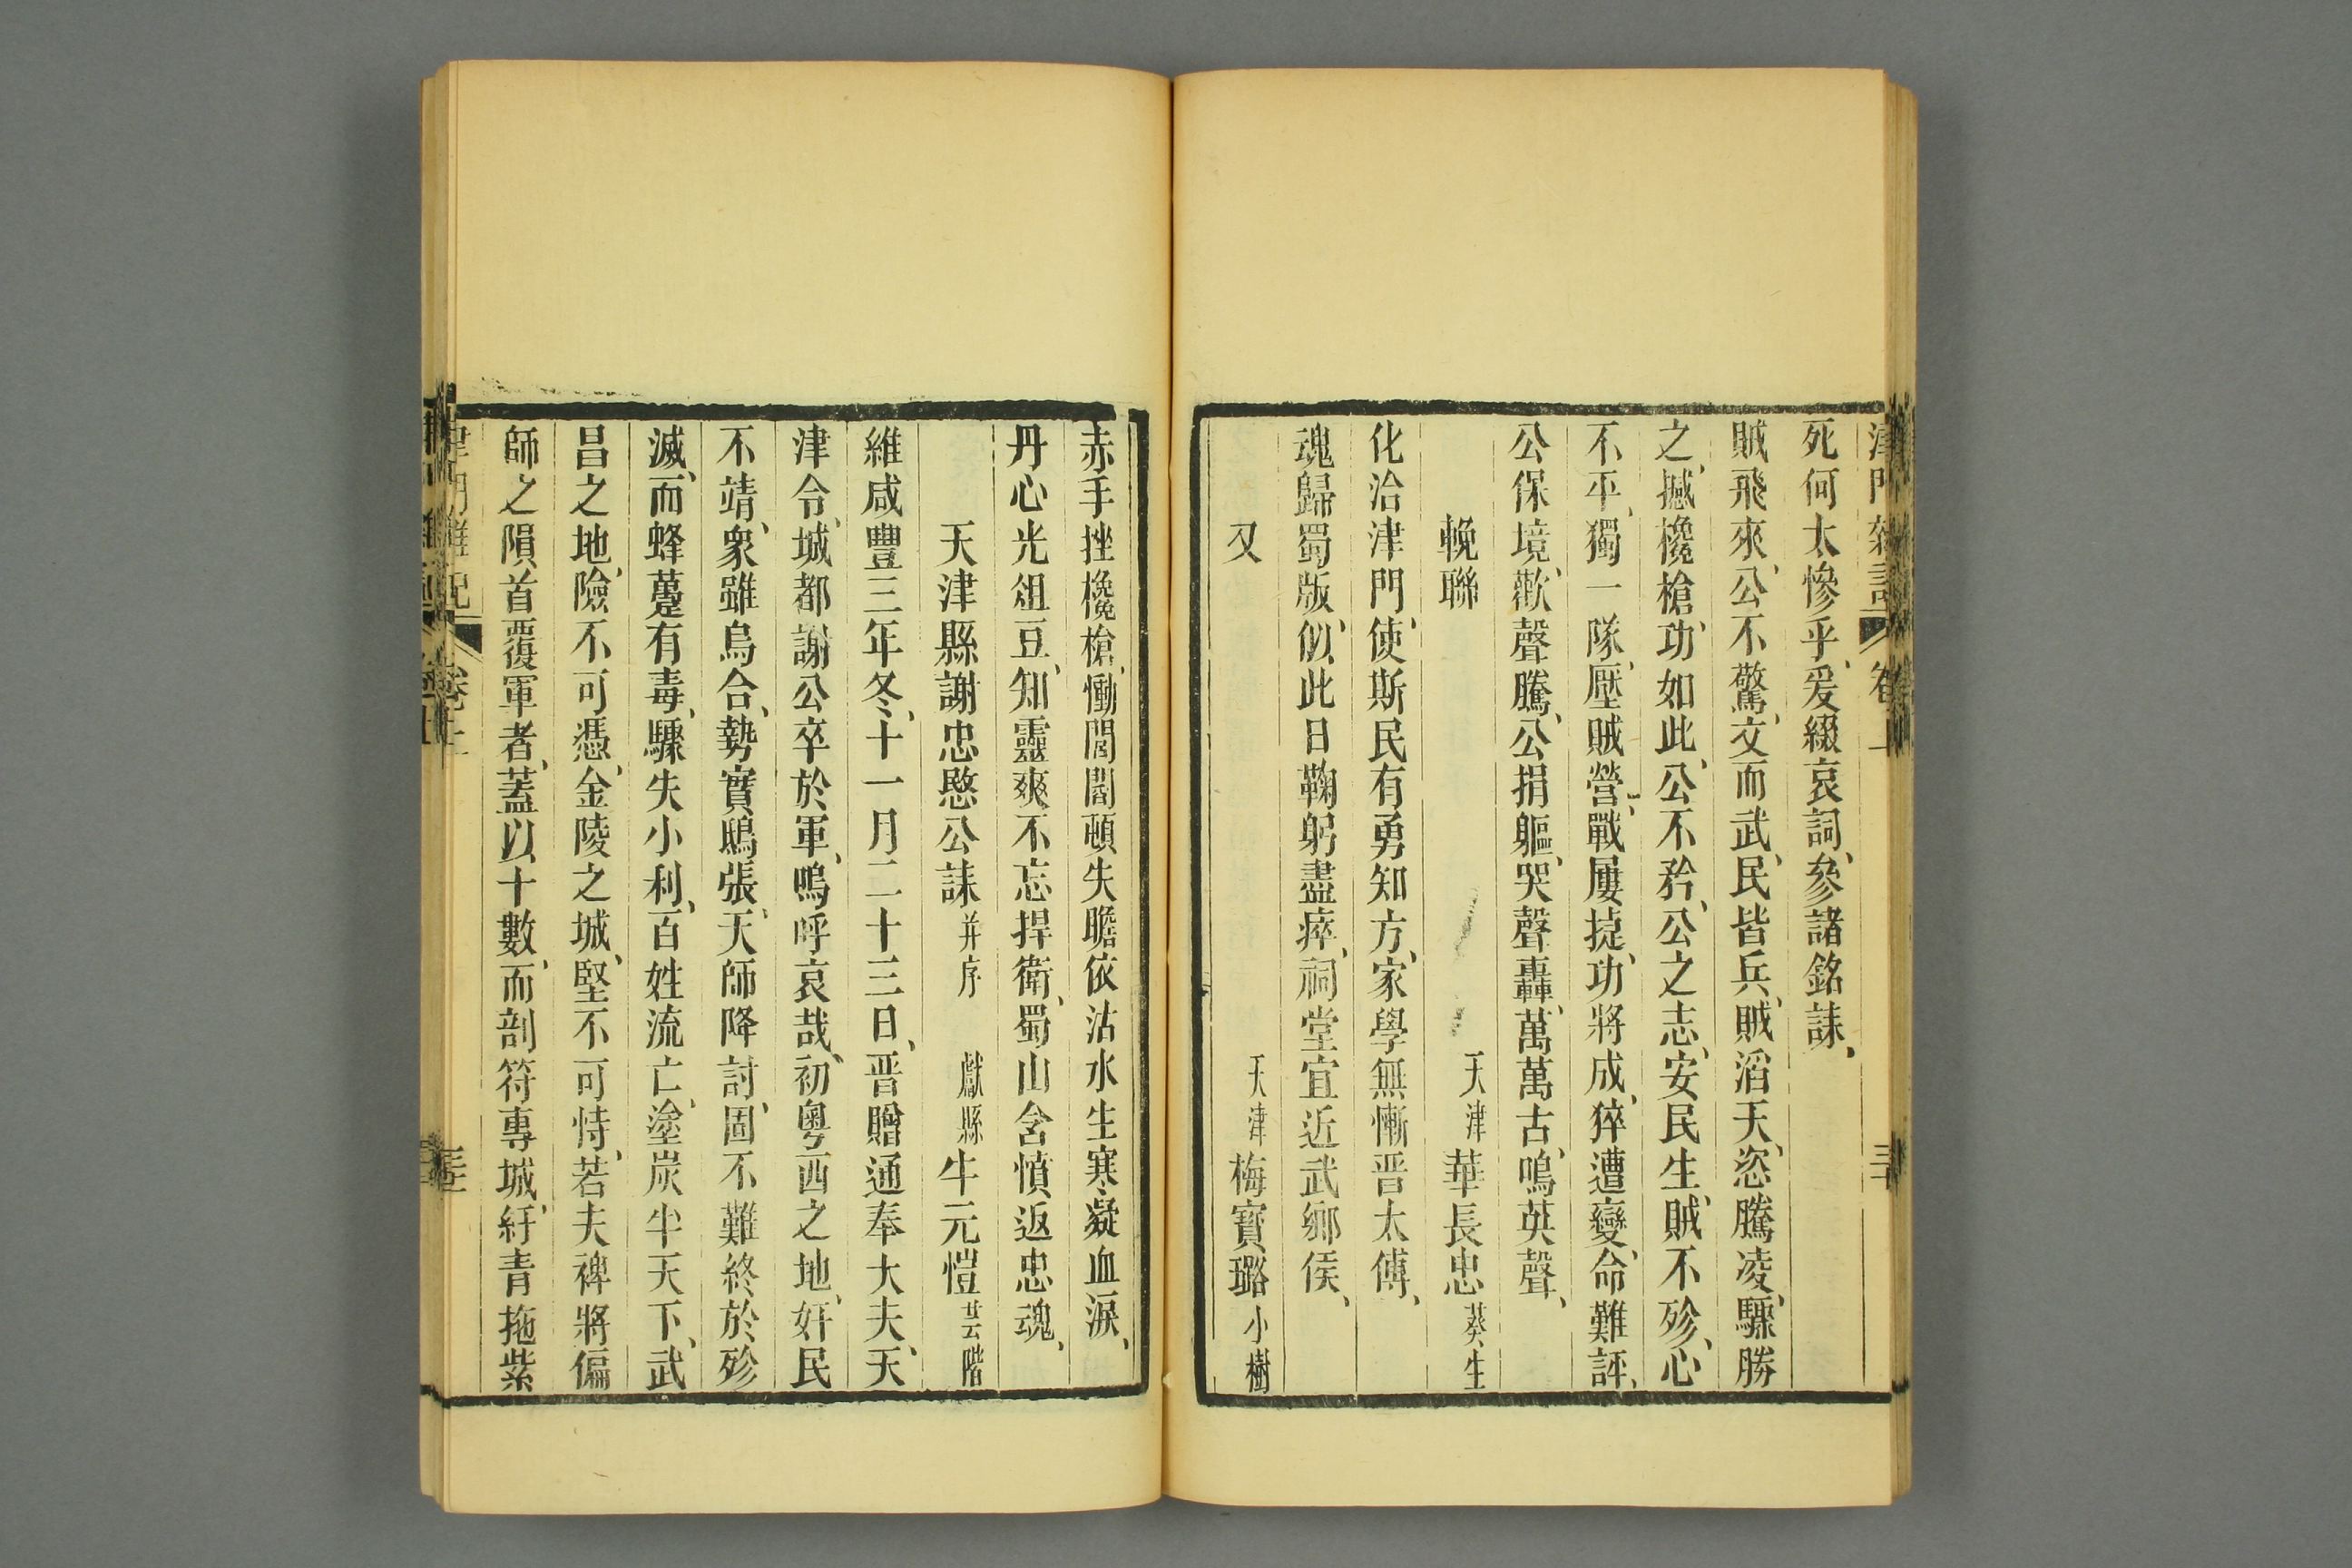 津門雜記 卷上 三十
死何太慘乎、爰綴哀詞、參諸銘誄、
賊飛來、公不驚、文而武、民皆兵、賊滔天、恣騰凌、驟勝
之、撼欃槍、功如此、公不矜、公之志、安民生、賊不殄、心
不平、獨一隊、壓賊營、戰屢捷、功將成、猝遭變、命難評、
公保境、歡聲騰、公捐軀、哭聲轟、萬萬古、鳴英聲、
輓聯 天津華長忠葵生
化洽津門、使斯民有勇知方、家學無慚晋太傅、
魂歸蜀版、似此日鞠躬盡瘁、祠堂宜近武鄉侯、
又 天津梅寶璐小樹
赤手挫欃槍、慟閭閻頓失瞻依、沽水生寒凝血淚、
丹心光俎豆、知靈爽不忘捍衛、蜀山含憤返忠魂、
天津縣謝忠愍公誄并序 獻縣牛元愷芸階
維咸豐三年冬、十一月二十三日、晋贈通奉大夫、天
津令、城都謝公卒於軍、嗚呼哀哉、初粵西之地、奸民
不靖、衆雖烏合、勢實鴟張、天師降討、固不難終於殄
滅、而蜂蠆有毒、驟失小利、百姓流亡、塗炭半天下、武
昌之地、險不可憑、金陵之城、堅不可恃、若夫裨將偏
師之隕首覆軍者、蓋以十數、而剖符專城、紆青拖紫
津門雜記 卷上